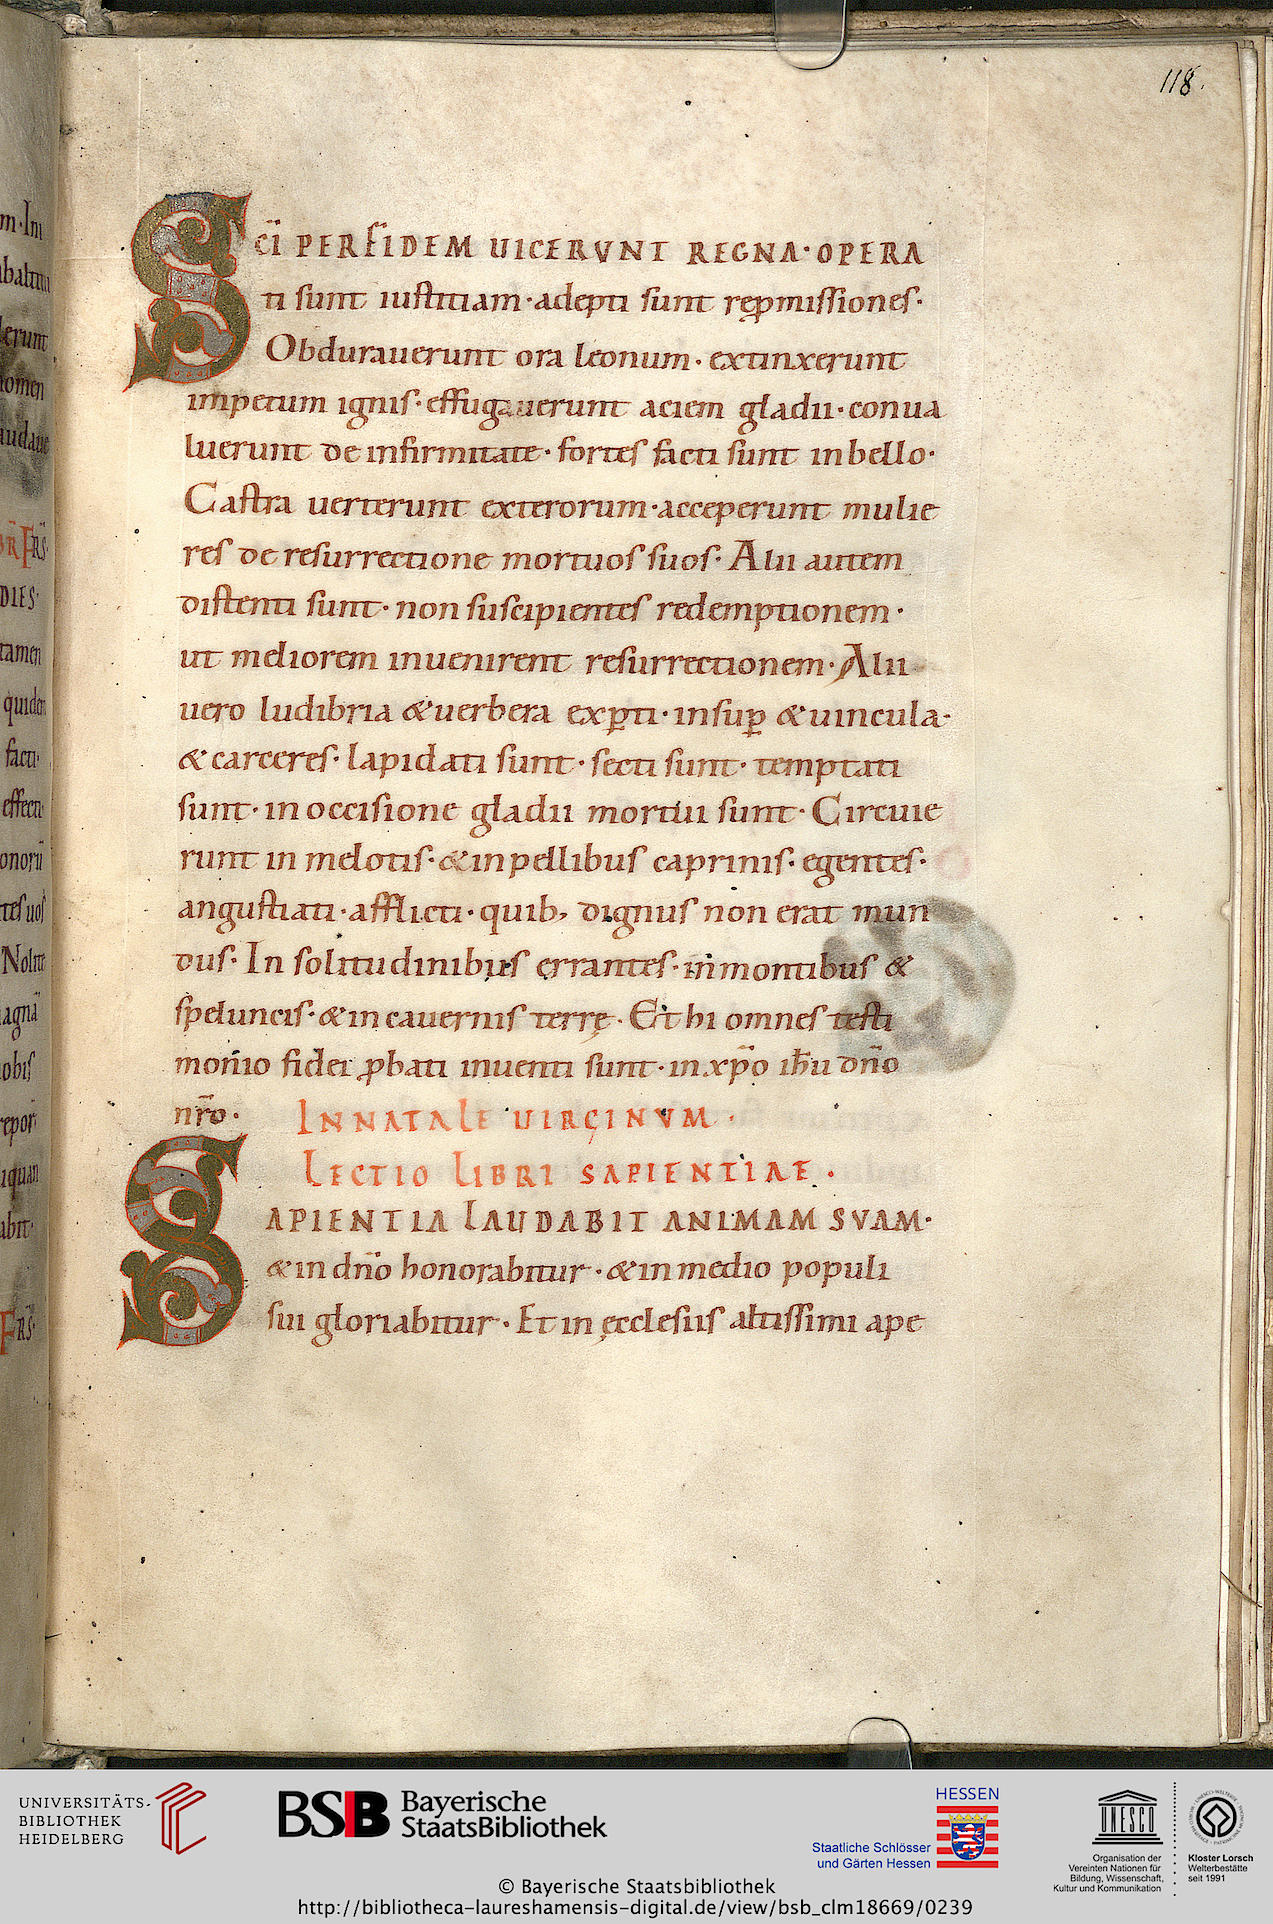 118.
SCĪ PER FIDEM UICERVNT REGNA · OPERA
ti sunt iustitiam · adepti sunt repmissiones ·
Obdurauerunt ora leonum · extinxerunt
impetum ignis · effugauerunt aciem gladii · conua
luerunt de infirmitate · fortes facti sunt in bello ·
Castra uerterunt exterorum · acceperunt mulie
res de resurrectione mortuos suos · Alii autem
distenti sunt · non suscipientes redemptionem ·
ut meliorem inuenirent resurrectionem · Alii
uero ludibria & uerbera expti · insup & uincula ·
& carceres · lapidati sunt · secti sunt · temptati
sunt · in occisione gladii mortui sunt · Circuie
runt in melotis · & in pellibus caprinis · egentes ·
angustiati · afflicti · quib; dignus non erat mun
dus · In solitudinibus errantes · in montibus &
speluncis · & in cauernis terrę · Et hi omnes testi
monio fidei pbati inuenti sunt · in xp̄o ih̄u dn̄o
nr̄o ·
IN NATALE UIRGINVM ·
LECTIO LIBRI SAPIENTIAE ·
SAPIENTIA LAUDABIT ANIMAM SVAM ·
& in dn̄o honorabitur · & in medio populi
sui gloriabitur · Et in ęcclesiis altissimi ape
m · Ini
lerunt
nomen
DIES ·
tamen
facti ·
effecti ·
Nolite
obis
iquan
abit ·
FRS ·
UNIVERSITÄTS-
BIBLIOTHEK
HEIDELBERG
BSB Bayerische
StaatsBibliothek
HESSEN
Staatliche Schlösser
und Gärten Hessen
UNESCO
Organisation der
Vereinten Nationen für
Bildung, Wissenschaft,
Kultur und Kommunikation
Kloster Lorsch
Welterbestätte
seit 1991
© Bayerische Staatsbibliothek
http://bibliotheca-laureshamensis-digital.de/view/bsb_clm18669/0239